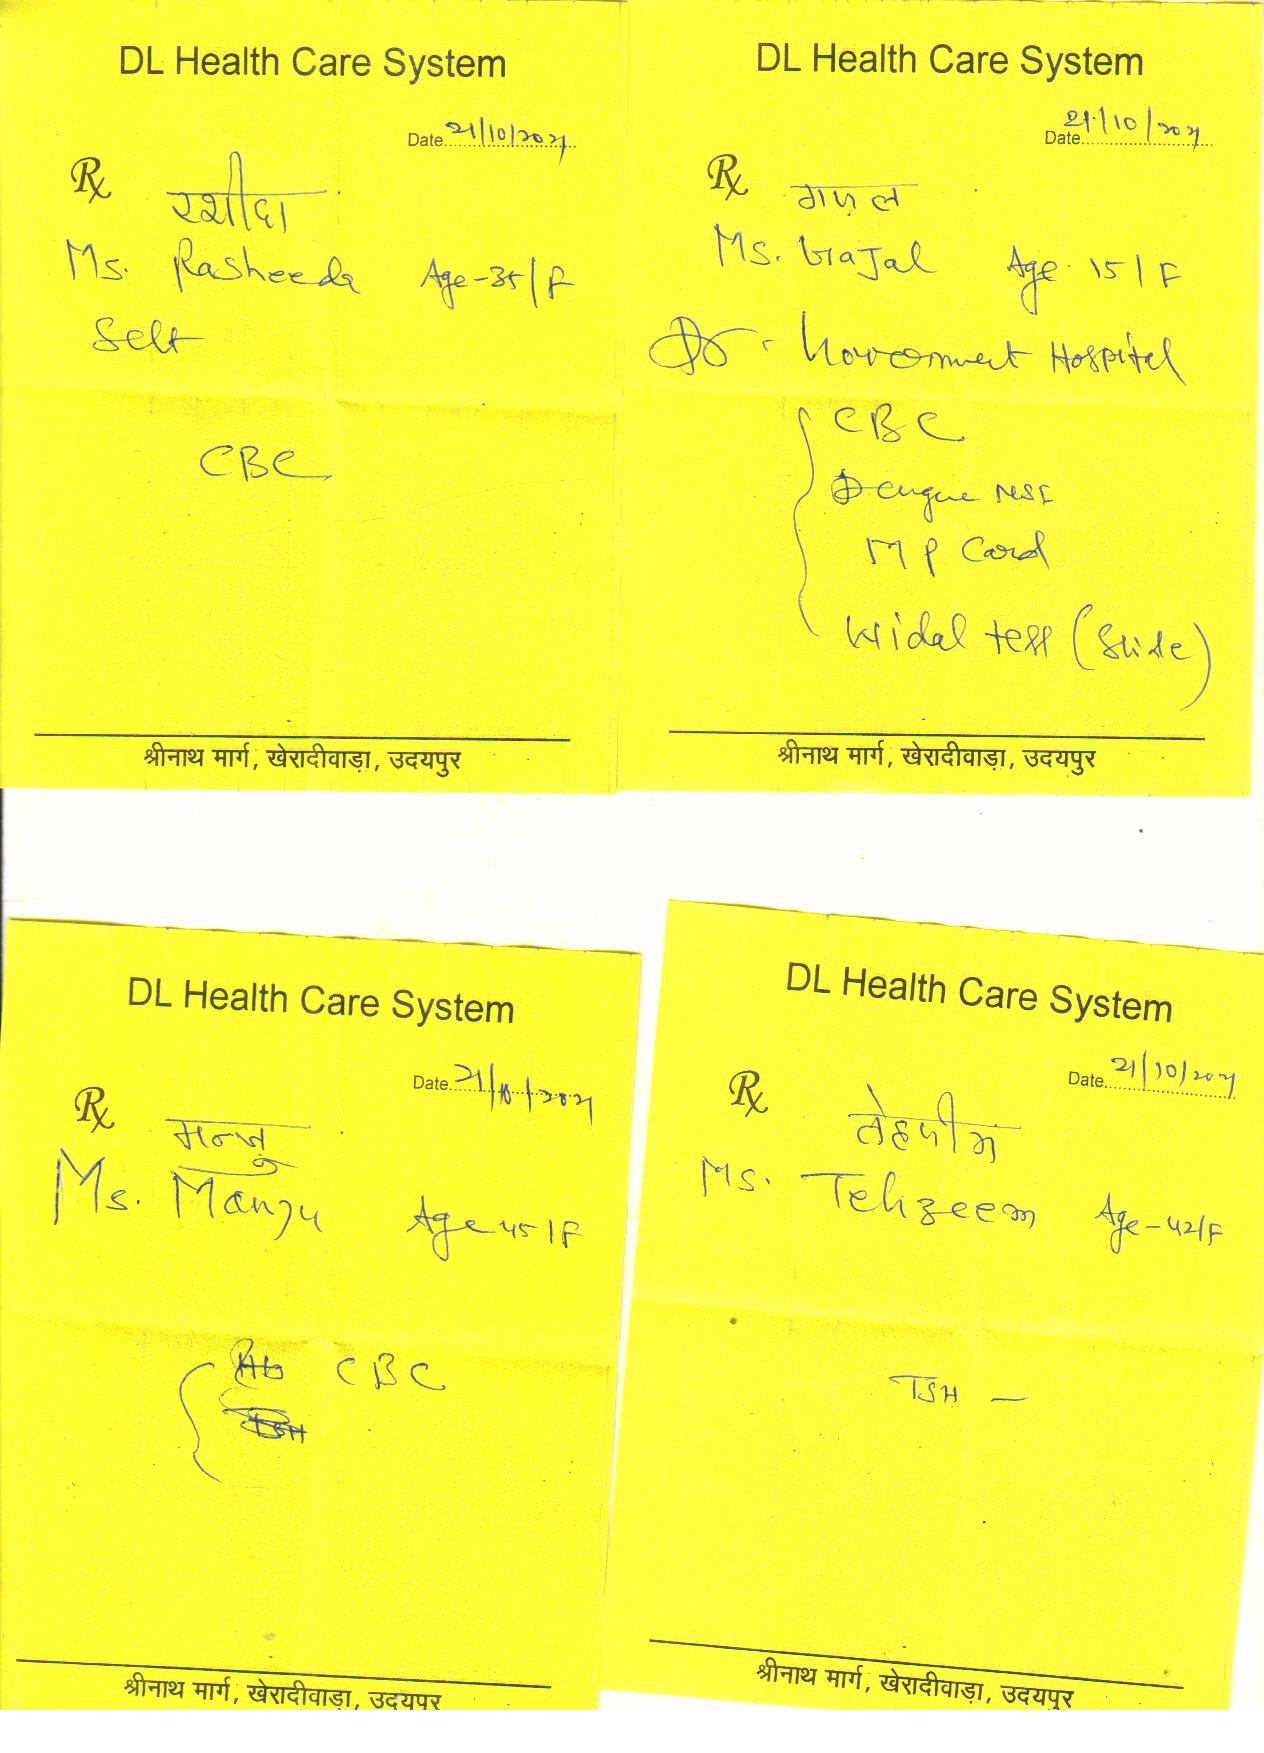 DL Health Care System
Date 21/10/2021
Rx
रशीदा
Ms. Rasheeda Age-35/F
Self
CBC
श्रीनाथ मार्ग, खेरादीवाड़ा, उदयपुर
DL Health Care System
Date 21/10/2021
Rx
गजल
Ms. Gajal Age 15/F
Dr. Government Hospital
CBC
Dengue NS1
MP Card
Widal test (Slide)
श्रीनाथ मार्ग, खेरादीवाड़ा, उदयपुर
DL Health Care System
Date 21/10/2021
Rx
मन्जु
Ms. Manju Age 45/F
CBC
श्रीनाथ मार्ग, खेरादीवाड़ा, उदयपुर
DL Health Care System
Date 21/10/2021
Rx
तेहजीम
Ms. Tehzeem Age-42/F
TSH —
श्रीनाथ मार्ग, खेरादीवाड़ा, उदयपुर